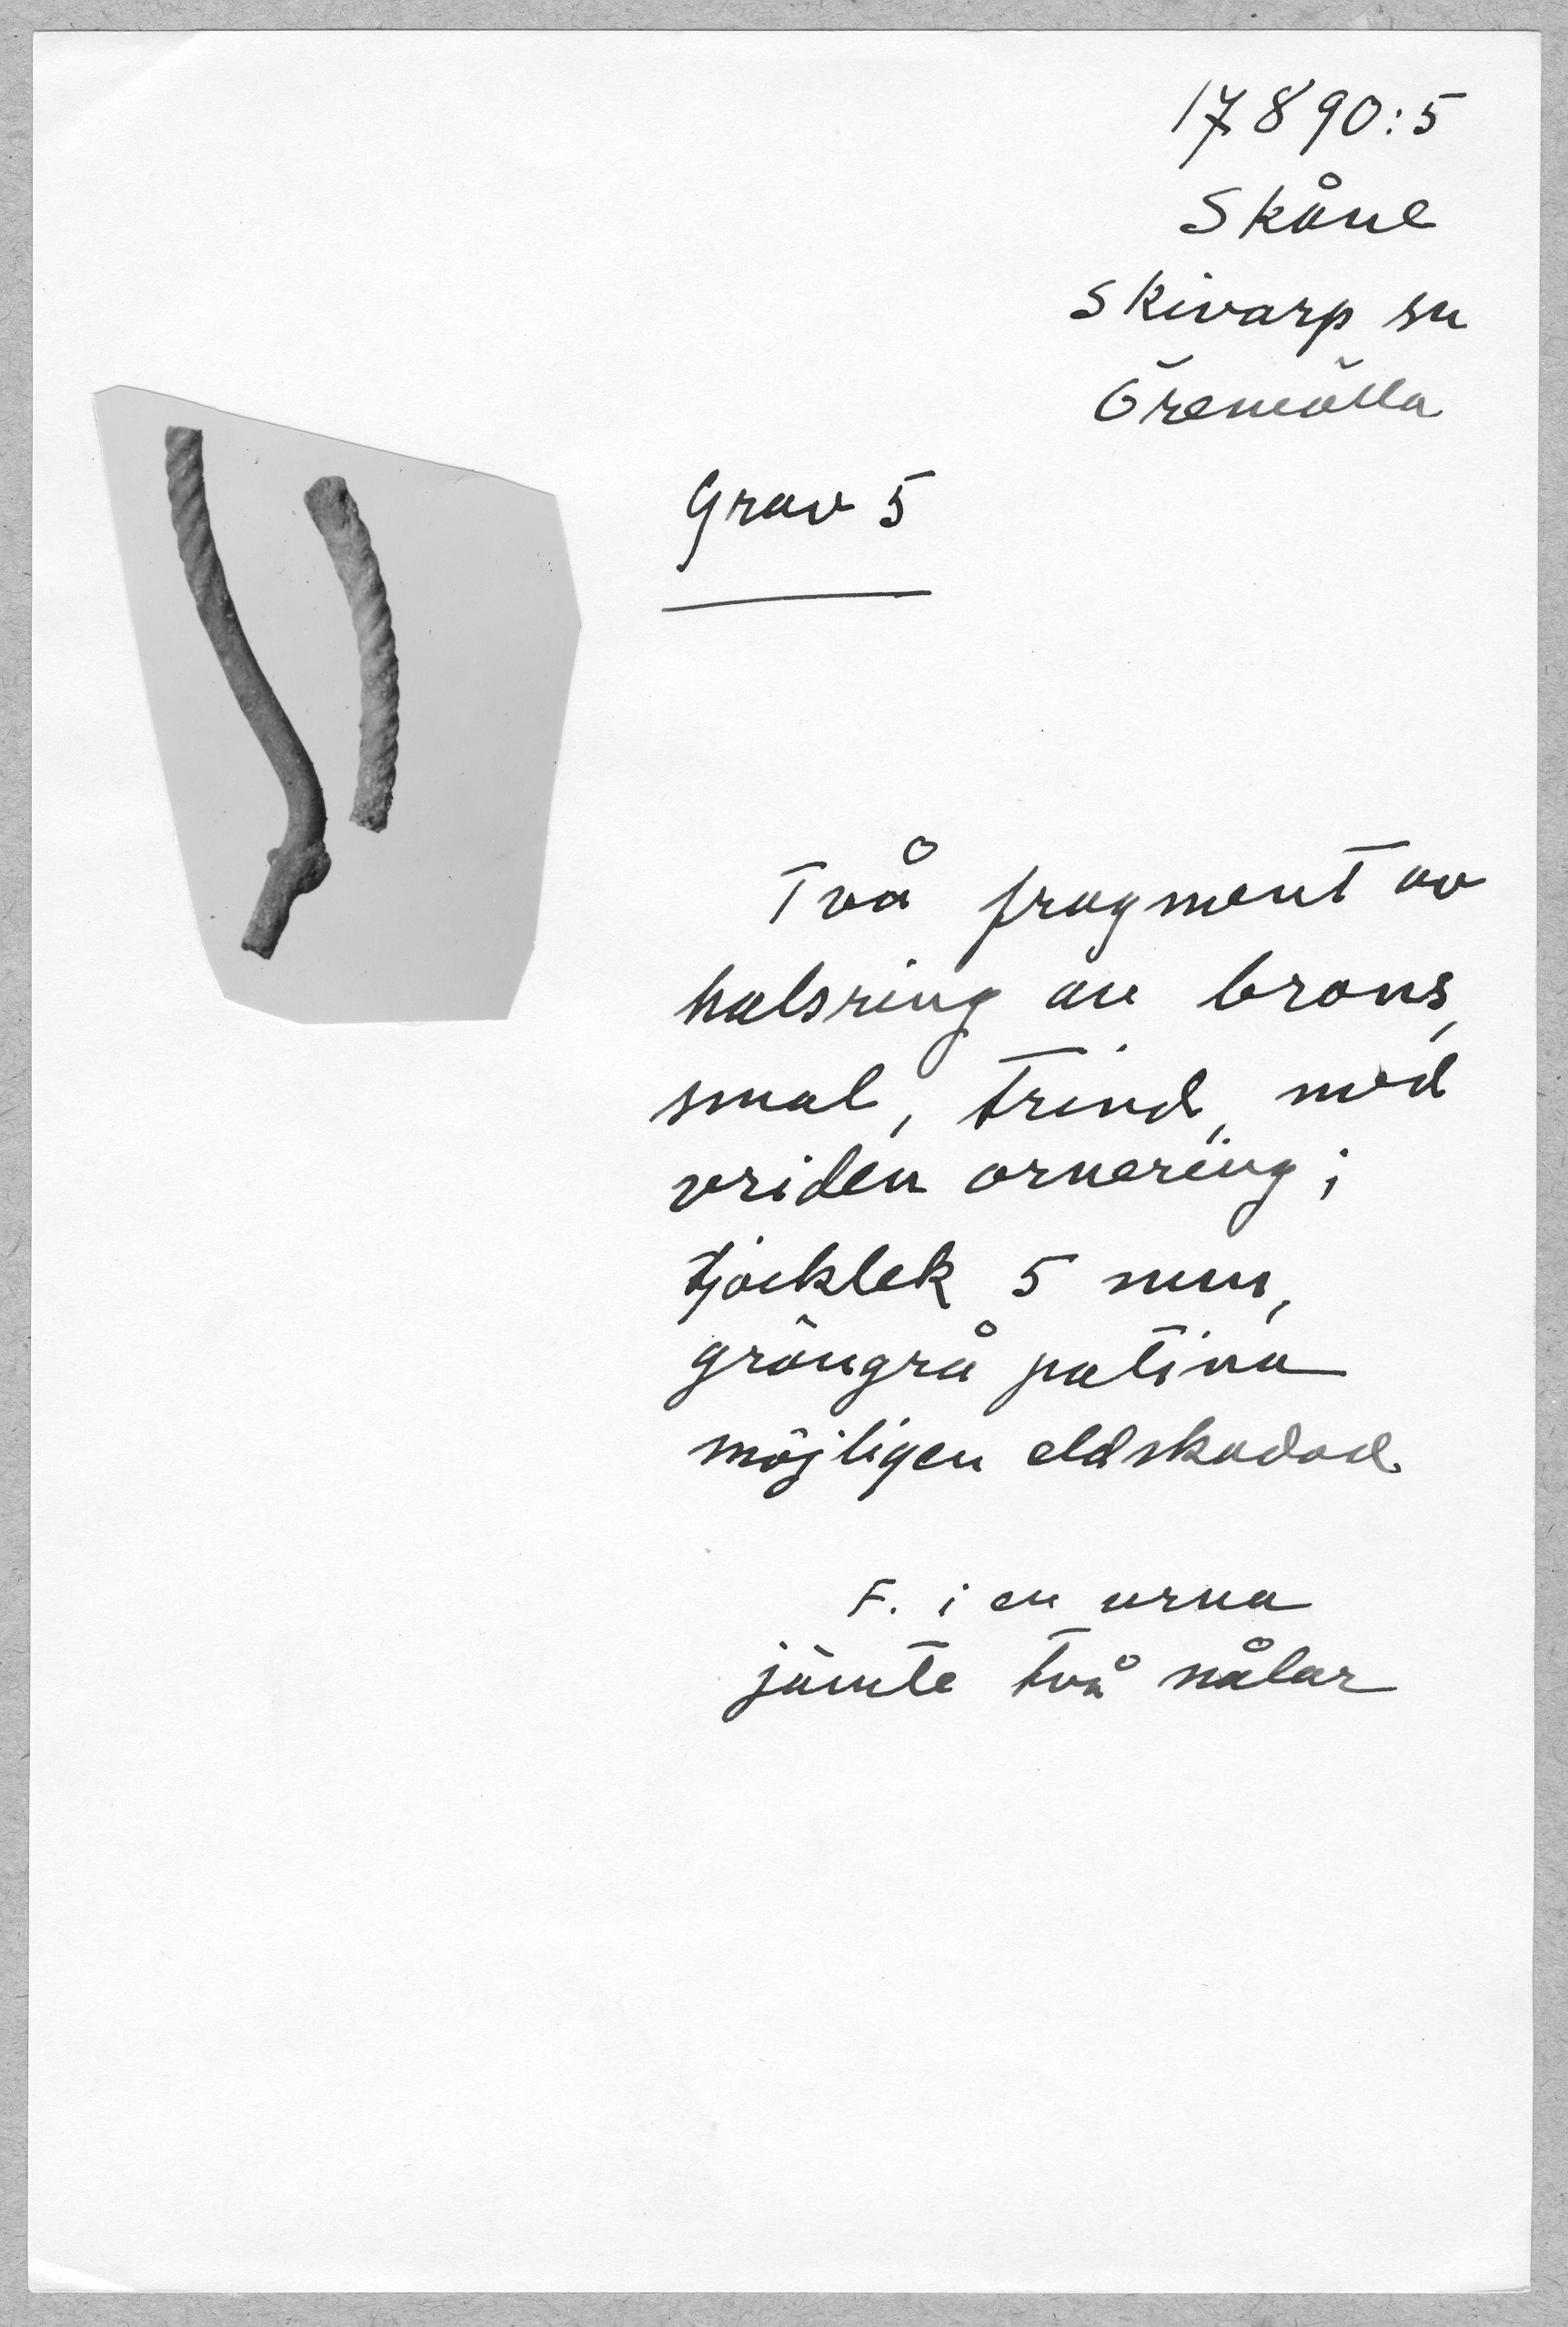 17890:5
Skåne
Skivarp sn
Öremölla
Grav 5
Två fragment av
halsring av brons,
smal, trind, med
vriden ornering;
tjocklek 5 mm,
gröngrå patina
möjligen eldskadad
F. i en urna
jämte två nålar